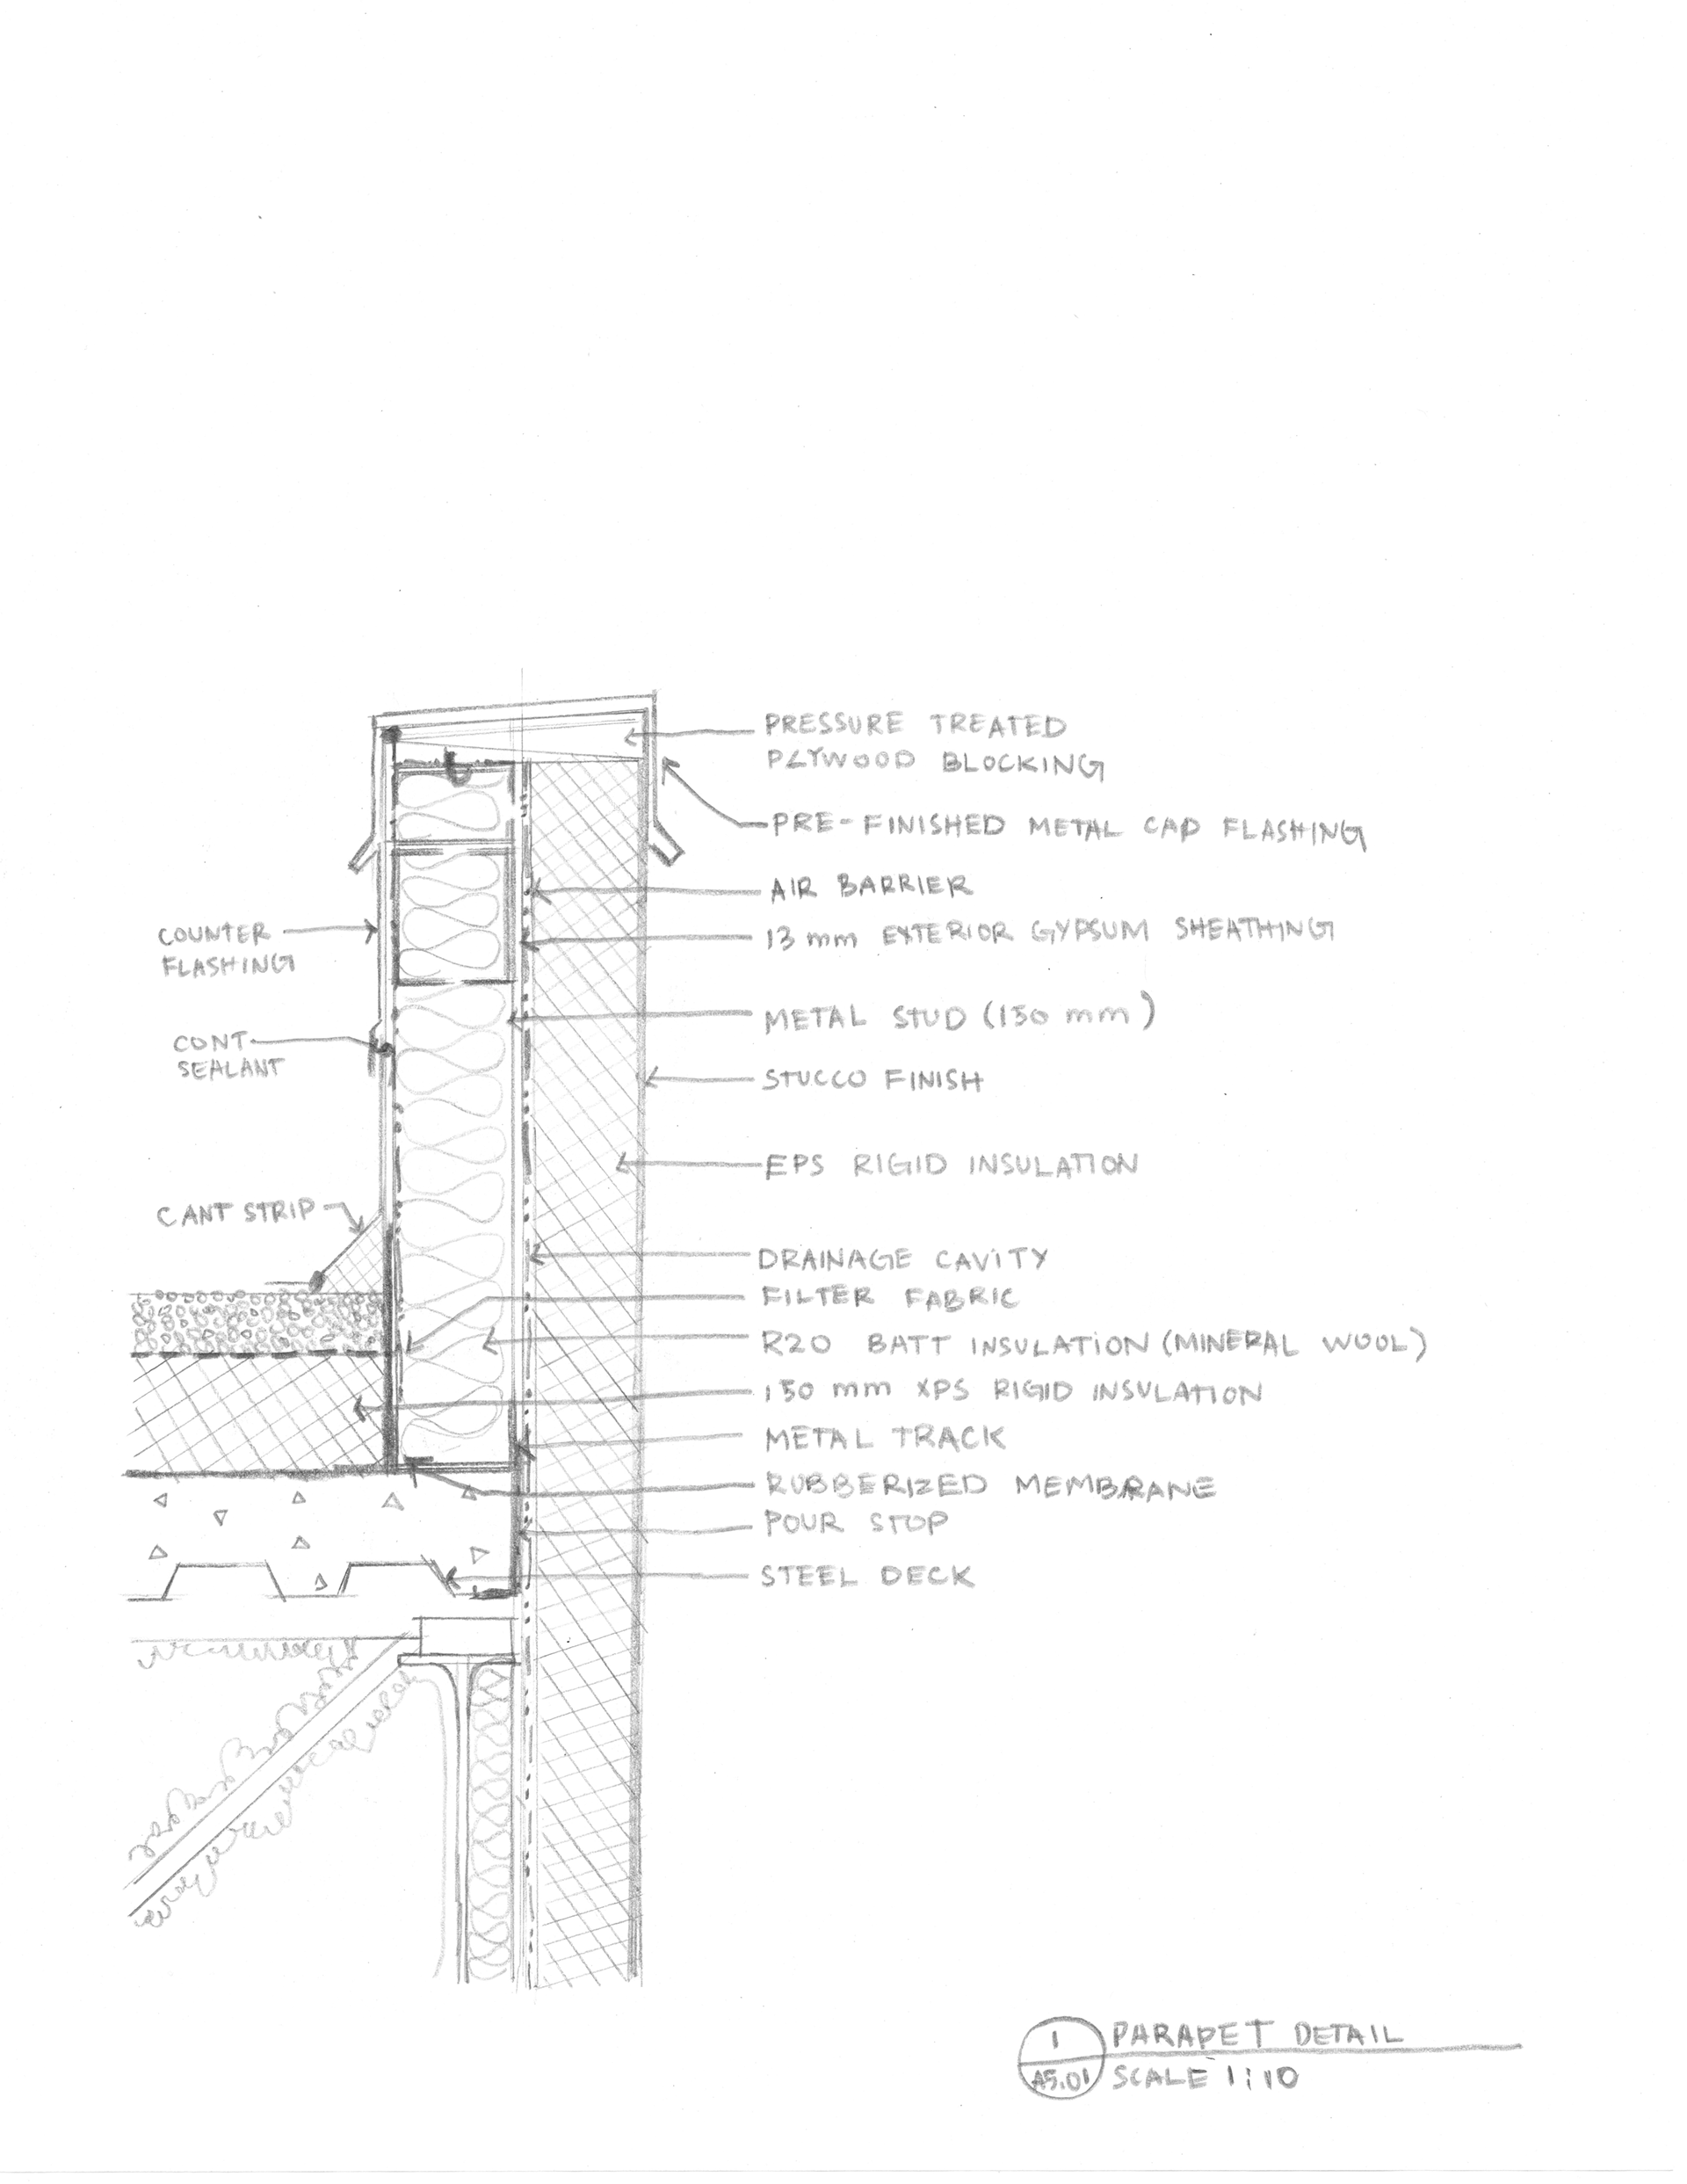 PRESSURE TREATED
PLYWOOD BLOCKING
PRE-FINISHED METAL CAP FLASHING
AIR BARRIER
13 mm EXTERIOR GYPSUM SHEATHING
METAL STUD (150 mm)
STUCCO FINISH
EPS RIGID INSULATION
DRAINAGE CAVITY
FILTER FABRIC
R20 BATT INSULATION (MINERAL WOOL)
150 mm XPS RIGID INSULATION
METAL TRACK
RUBBERIZED MEMBRANE
POUR STOP
STEEL DECK
COUNTER
FLASHING
CONT.
SEALANT
CANT STRIP
1
A5.01
PARAPET DETAIL
SCALE 1:10